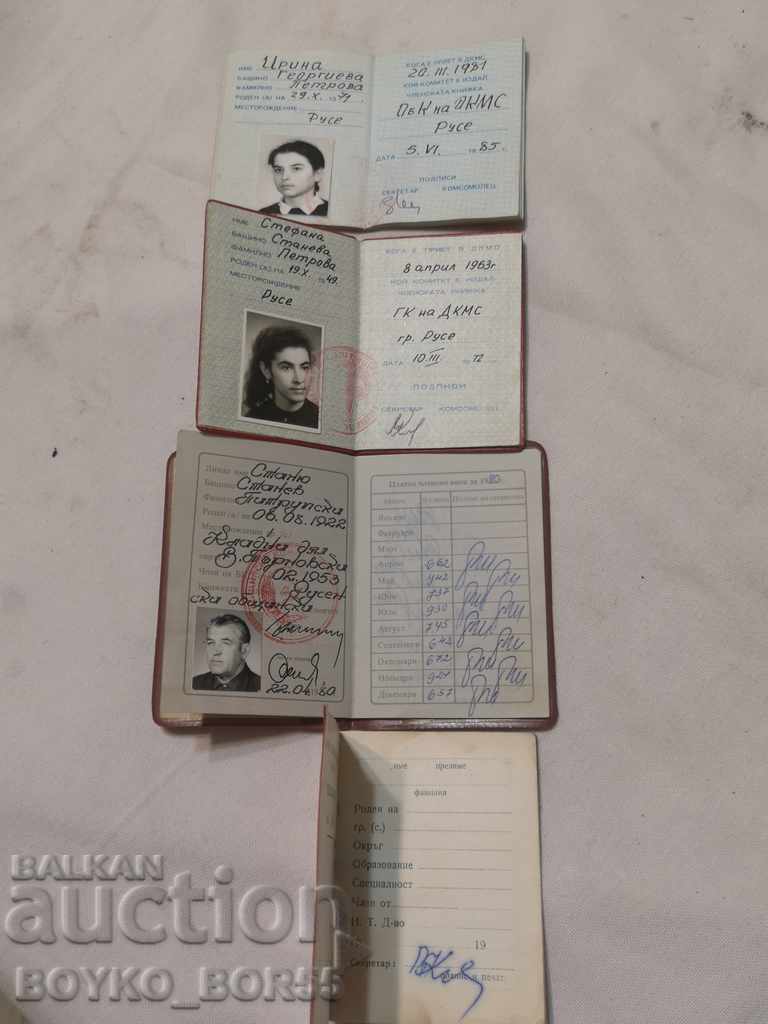 ИМЕ Ирина
БАЩИНО Георгиева
ФАМИЛНО Петрова
РОДЕН (А) НА 29.X. 1971.
МЕСТОРОЖДЕНИЕ
Русе
КОГА Е ПРИЕТ В ДКМС
20. III. 1981
КОЙ КОМИТЕТ Е ИЗДАЛ
ЧЛЕНСКАТА КНИЖКА
ПбК на ДКМС
Русе
ДАТА 5. VI. 1985 г.
ПОДПИСИ
СЕКРЕТАР КОМСОМОЛЕЦ
ИМЕ Стефана
БАЩИНО Станева
ФАМИЛНО Петрова
РОДЕН (А) НА 19 X. 1949.
МЕСТОРОЖДЕНИЕ
Русе
КОГА Е ПРИЕТ В ДКМС
8 април 1963г
КОЙ КОМИТЕТ Е ИЗДАЛ
ЧЛЕНСКАТА КНИЖКА
ГК на ДКМС
гр. Русе
ДАТА 10. III 1972
ПОДПИСИ
СЕКРЕТАР КОМСОМОЛЕЦ
Станю
Бащино Станев
06.08.1922
Месторождение (с)
В. Търновски
02.1953
Русен-
ски общински
22.04.1980
Платен членски внос за 1980
Януари
Февруари
Март
Април 662
Май 742
Юни 737
Юли 930
Август 745
Септември 648
Октомври 672
Ноември 921
Декември 657
име презиме
фамилия
Роден на
гр. (с.)
Окръг
Образование
Специалност
Член от
Н. Т. Д-во
19
Секретар:
подпис и печат
BALKAN
auction
BOYKO_BOR55